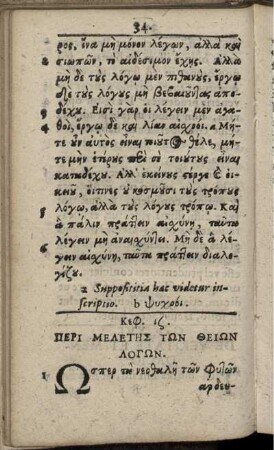 34.
ρος, ἵνα μὴ μόνον λέγων, ἀλλὰ καὶ
σιωπῶν, τὸ αἰδέσιμον ἔχῃς. Ἀλλὰ
μὴ δὲ τοὺς λόγῳ μὲν πιθανοὺς, ἔργῳ
δὲ τοὺς λόγους μὴ βεβαιοῦντας ἀπο-
δέχου. Εἰσὶ γὰρ οἱ λέγειν μὲν ἀγα-
θοὶ, ἔργῳ δὲ καὶ λίαν αἰσχροί. a Μή-
τε οὖν αὐτὸς εἶναι τοιοῦτος θέλε, μή-
τε μὴν ἑτέρους τοιούτους εἶναι
καταδέχου. Ἀλλ' ἐκείνους στέργε
οἵτινες κοσμοῦσι τοὺς τρόπους
λόγῳ, ἀλλὰ τοὺς λόγους τρόπῳ. Καὶ
ἃ πάλιν πράττειν αἰσχύνη, ταῦτα
λέγειν μὴ ἀναισχύντει. Μὴ δὲ ἃ λέ-
γειν αἰσχύνη, ταῦτα πράττειν διαλο-
γίζου.
a Supposititia hac videtur in-
scriptio. b ψυχροί.
Κεφ. ιζ.
ΠΕΡΙ ΜΕΛΕΤΗΣ ΤΩΝ ΘΕΙΩΝ
ΛΟΓΩΝ.
Ὥσπερ τὰ νεοθαλῆ τῶν φυτῶν
αρδευ-